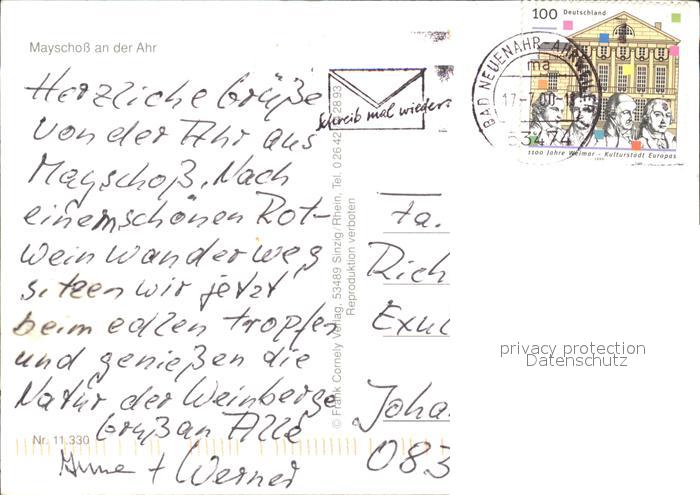 Mayschoß an der Ahr
Herzliche Grüße
von der Ahr aus
Mayschoß. Nach
einem schönen Rot-
wein wanderweg
sitzen wir jetzt
beim edlen tropfen
und genießen die
Natur der Weinberge
Gruß an Alle
+ Werner
Nr. 11.330
© Frank Cornely Verlag, 53489 Sinzig/Rhein, Tel. 0 26 42
Reproduktion verboten
Schreib mal wieder
BAD NEUENAHR-AHRWEILER
ma
53474
100 Deutschland
1100 Jahre Weimar - Kulturstadt Europas
1999
Fa.
Rich
Joha
083
privacy protection
Datenschutz